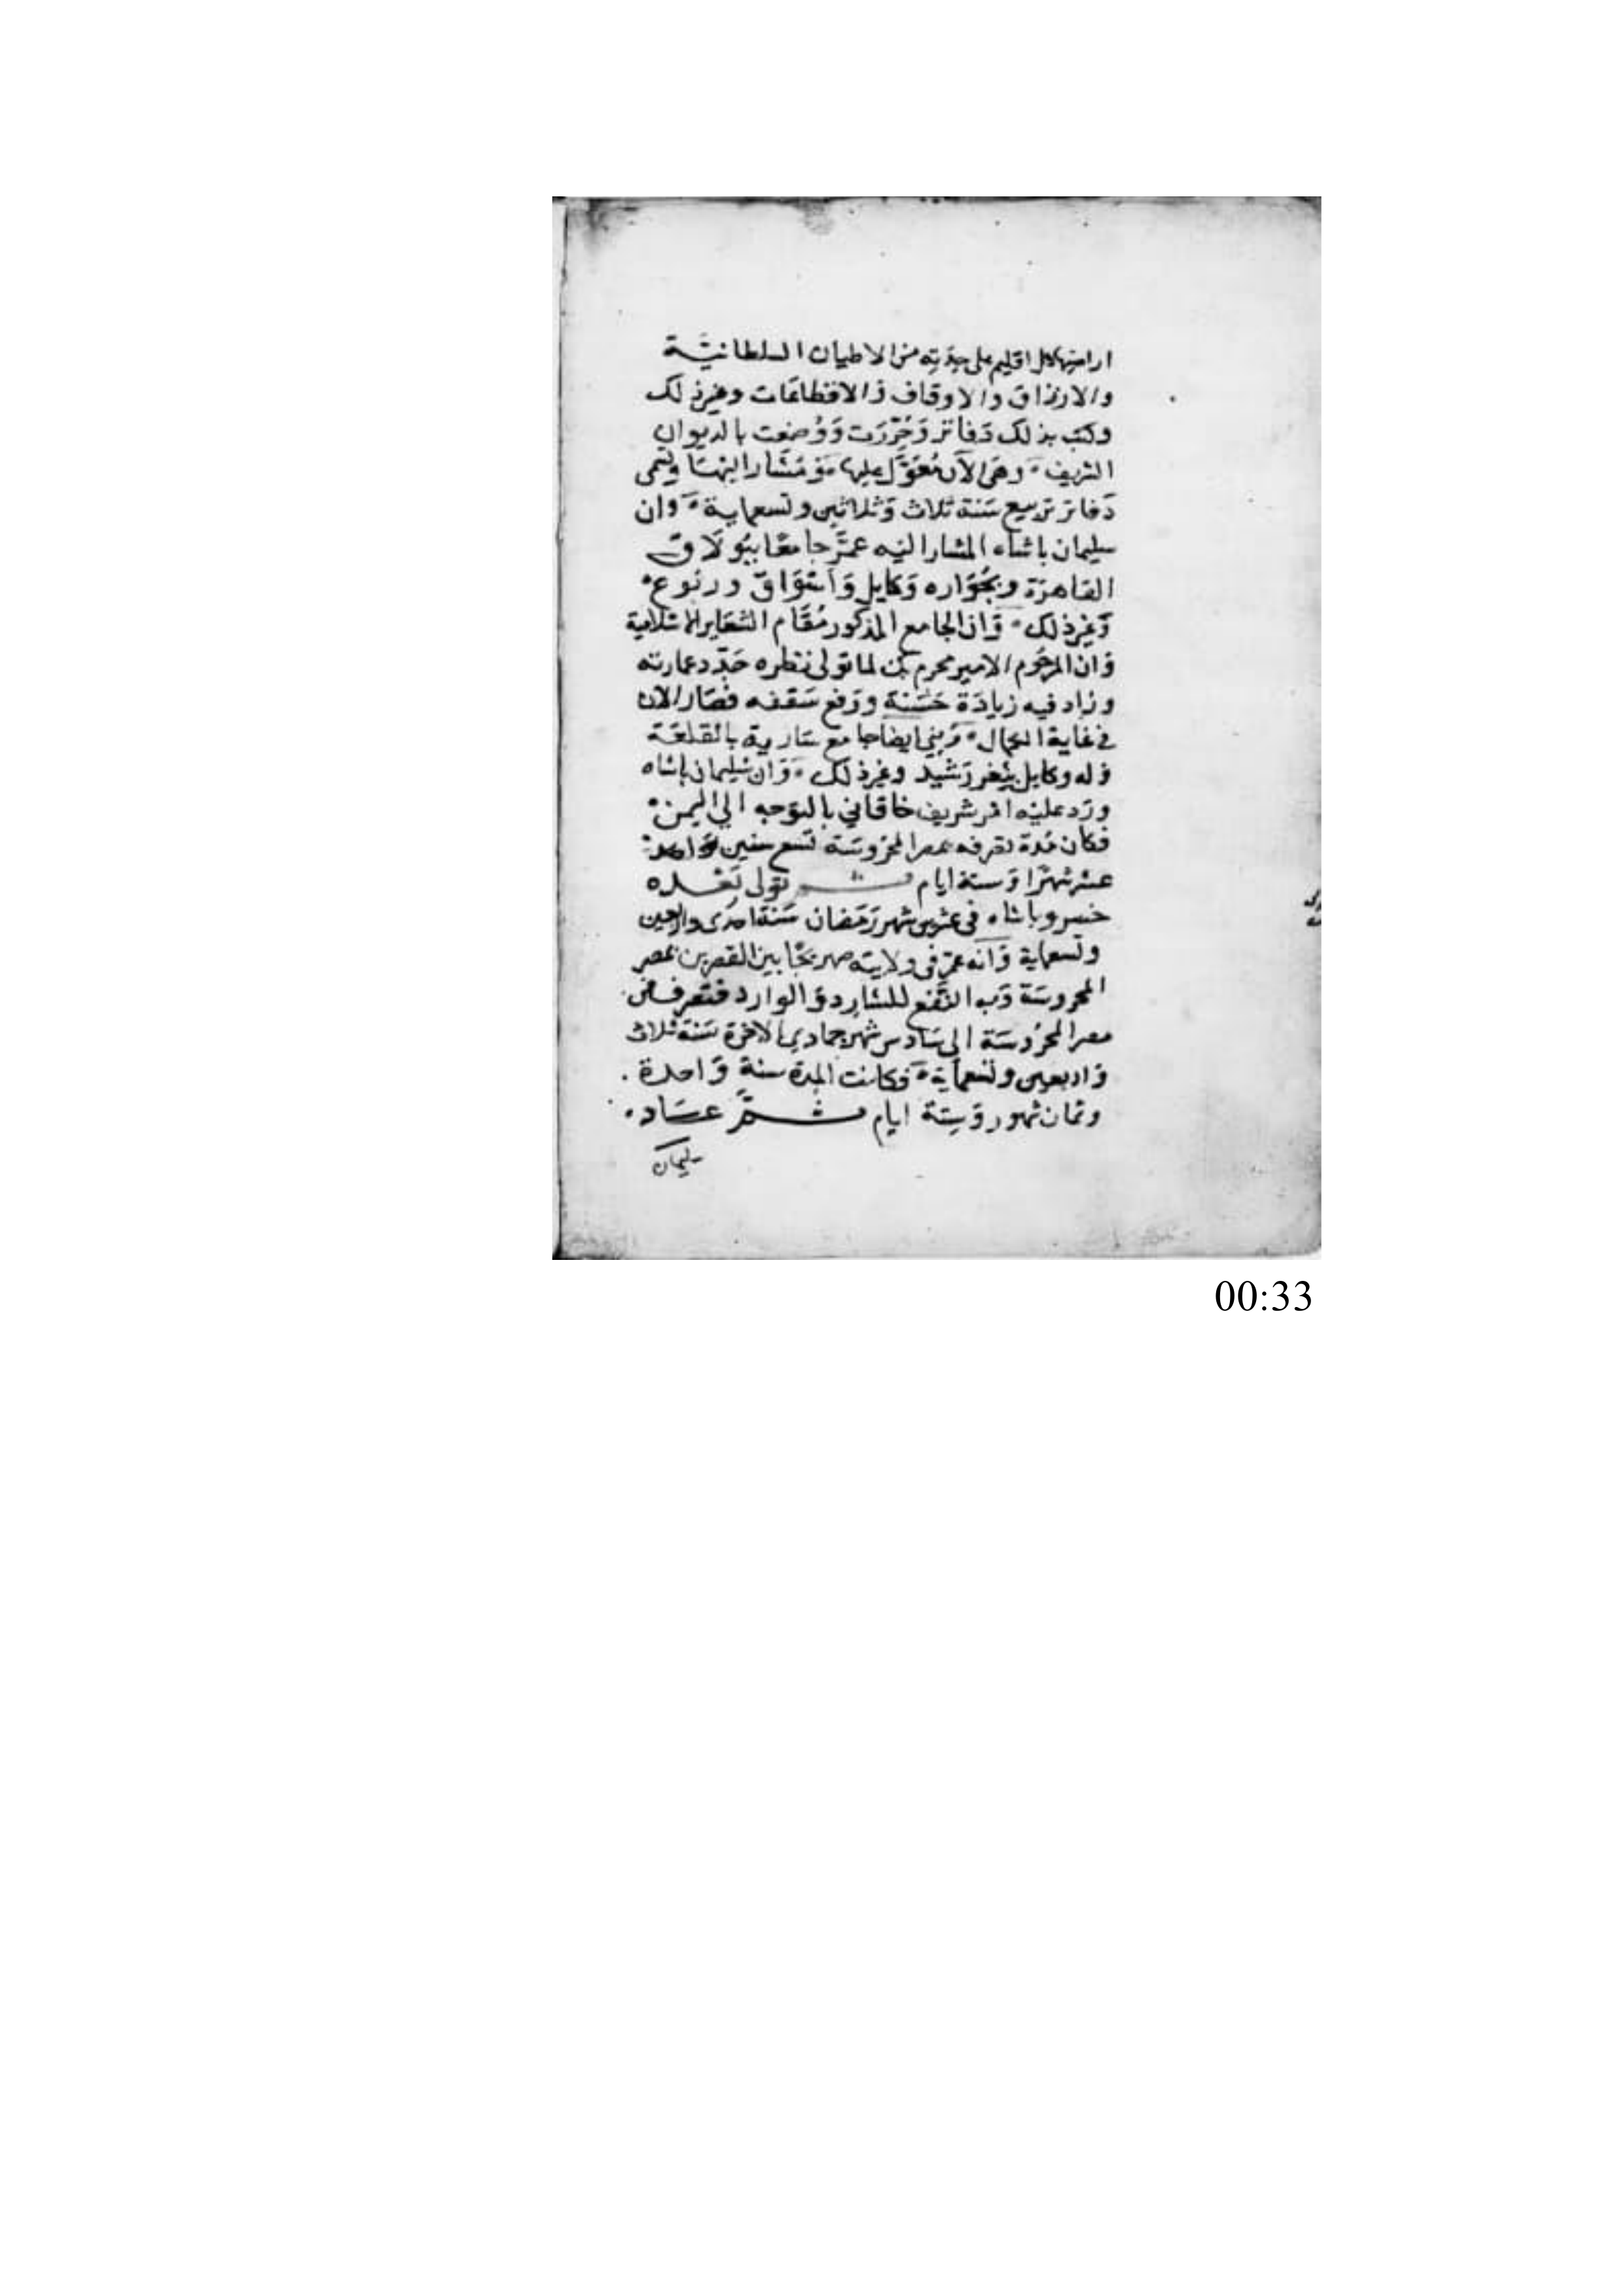 اراضيها كل اقليم على حِدَتِه من الاطيان السلطانيَّة
والارزاق والاوقاف وَالاقطاعَات وغير ذلك
وكتب بذلك دَفاتر وَحُرِّرَت وَوُضعت بالديوان
الشريف وهى الآن مُعَوَّل عليها وَمُشَار اليهَا وتسمى
دَفاتر تربيع سَنة ثلاث وَثلاثين وتسعماية وَان
سليمان باشاه المشار اليَه عمَّر جامعًا ببُولَاق
القاهرَة وبجُوَاره وَكايل وَاسْوَاق وربُوع
وَغير ذلك وَان الجامع المذكور مُقَام الشعَاير الاسْلامية
وَان المرحُوم الامير محرم بك لما تولى نظره جَدّد عمارته
وزاد فيه زيادَة حَسَنة ورَفع سَقفه فصَار الان
في غاية الجمال وَبني ايضًا جامع سَارية بالقلعَة
وَله وكايل بثغر رَشيد وغير ذلك وَان سُليمان باشاه
ورَد عليْه امْر شريف خاقاني بالتوَجه الي اليمن
فكان مُدة تصَرفه بمصر المحرُوسَة تسع سنين وَاحد
عشر شهرًا وَستة ايام ثم تولى بَعْده
خسرو باشاه فى عشرين شهر رَمَضان سَنة احدَى واربعين
وتسعماية وَانه عمّر فى ولايته صهريجًا بين القصرين بمصر
المحروسَة وَبه النَّفع للشارد وَالوارد فتصرف فى
مصر المحرُوسَة الى سَادس شهر جمادي الاخرَة سَنة ثلاث
وَاربعين وتسعماية فكانت المدة سنة وَاحدة
وثمان شهور وَستة ايام ثمَّ عسَاد
سليمان
00:33